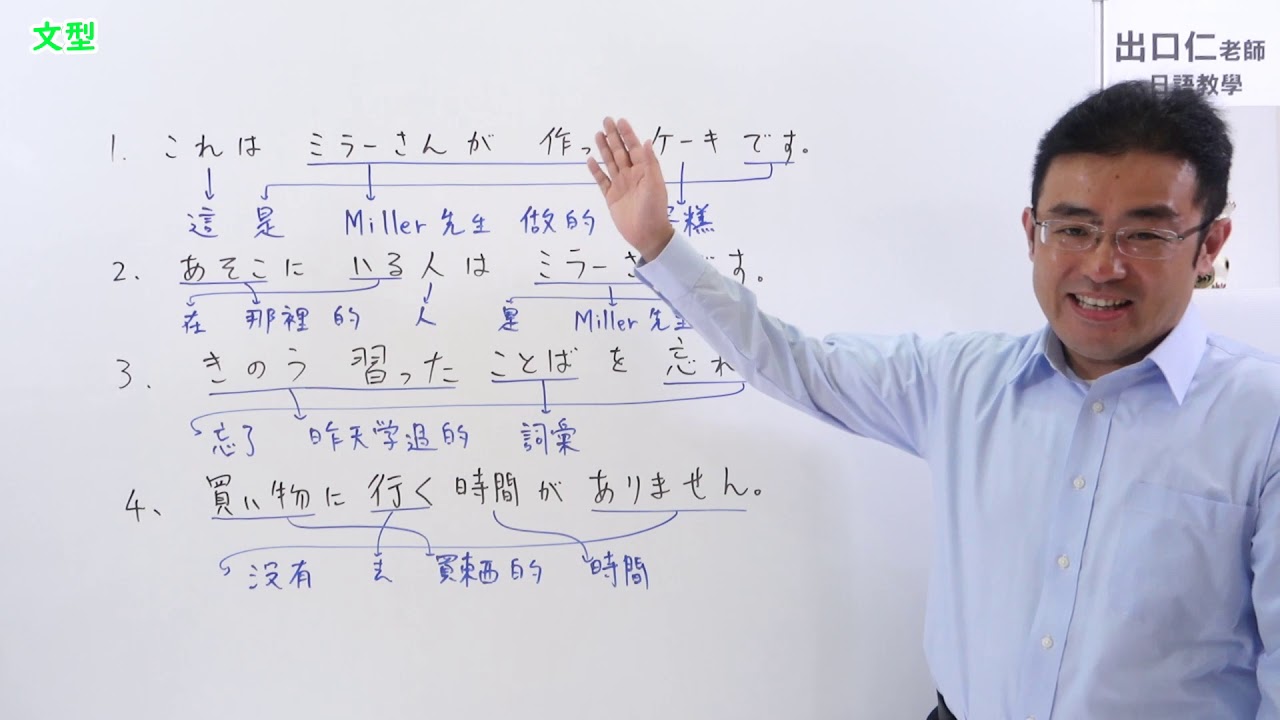 文型
出口仁老師
日語教學
1. これは ミラーさんが 作っ ケーキです。
這 是 Miller先生 做的 糕
2. あそこに いる人は ミラーさ です。
在 那裡 的 人 是 Miller先生
3. きのう 習った ことばを 忘れ
忘了 昨天学過的 詞彙
4、 買い物に 行く 時間が ありません。
没有 去 買東西的 時間